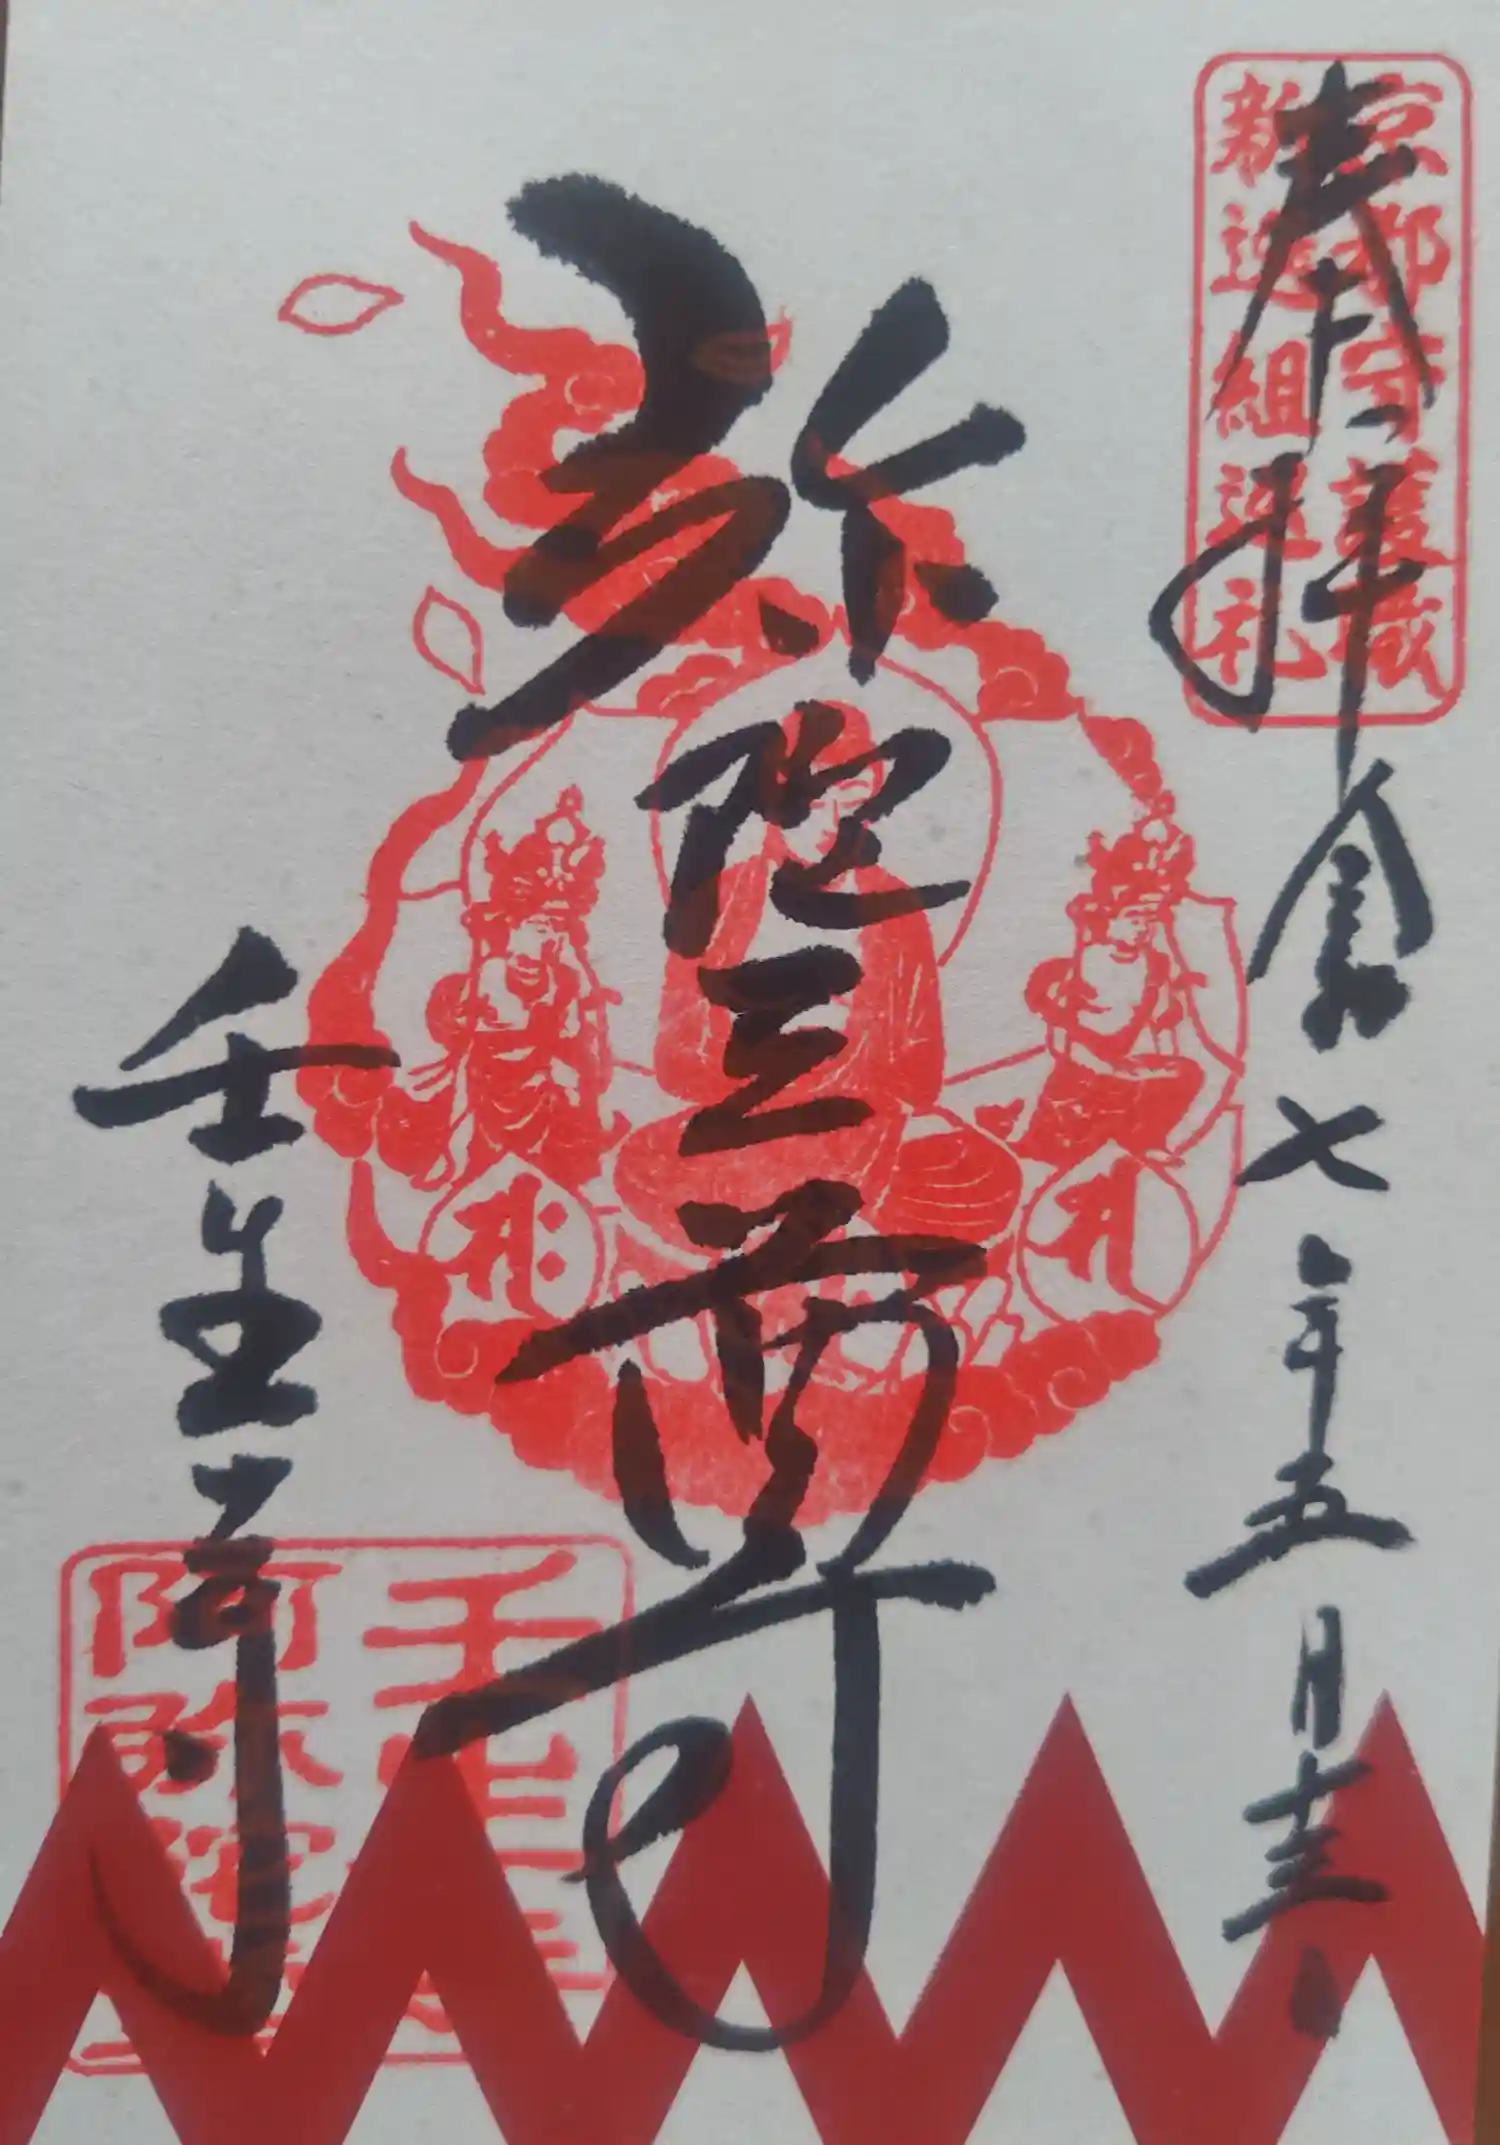 京都守護職
新選組巡礼
奉拝 令和七年五月十三日
弥陀三尊
壬生寺
壬生寺
阿弥陀堂